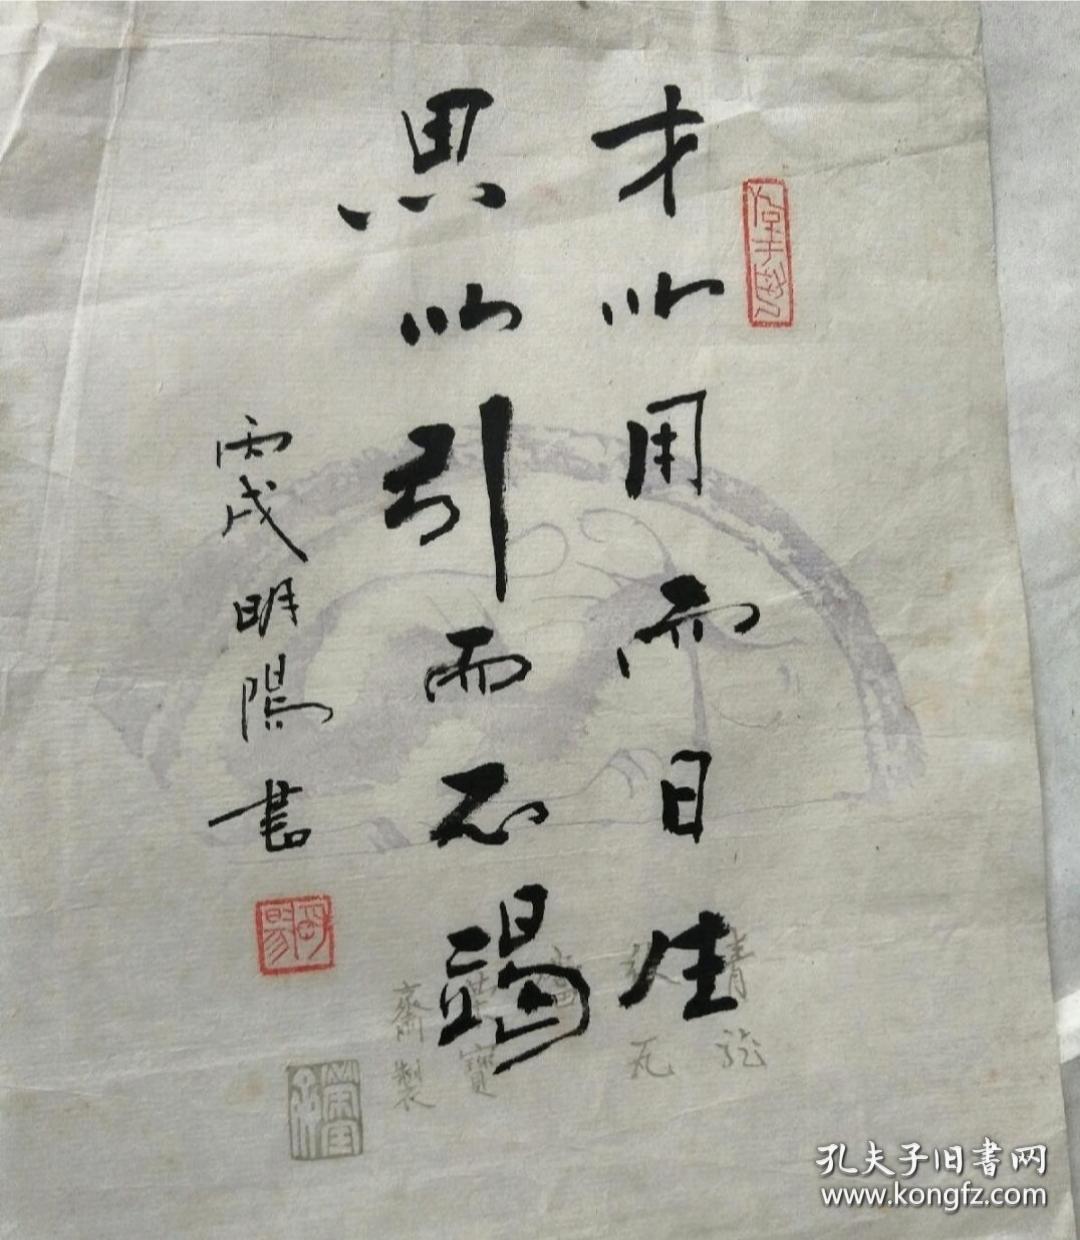 才以用而日生
思以引而不竭
丙戌明陽書
青龍
瓦
寶
齋製
孔夫子旧書网
www.kongfz.com